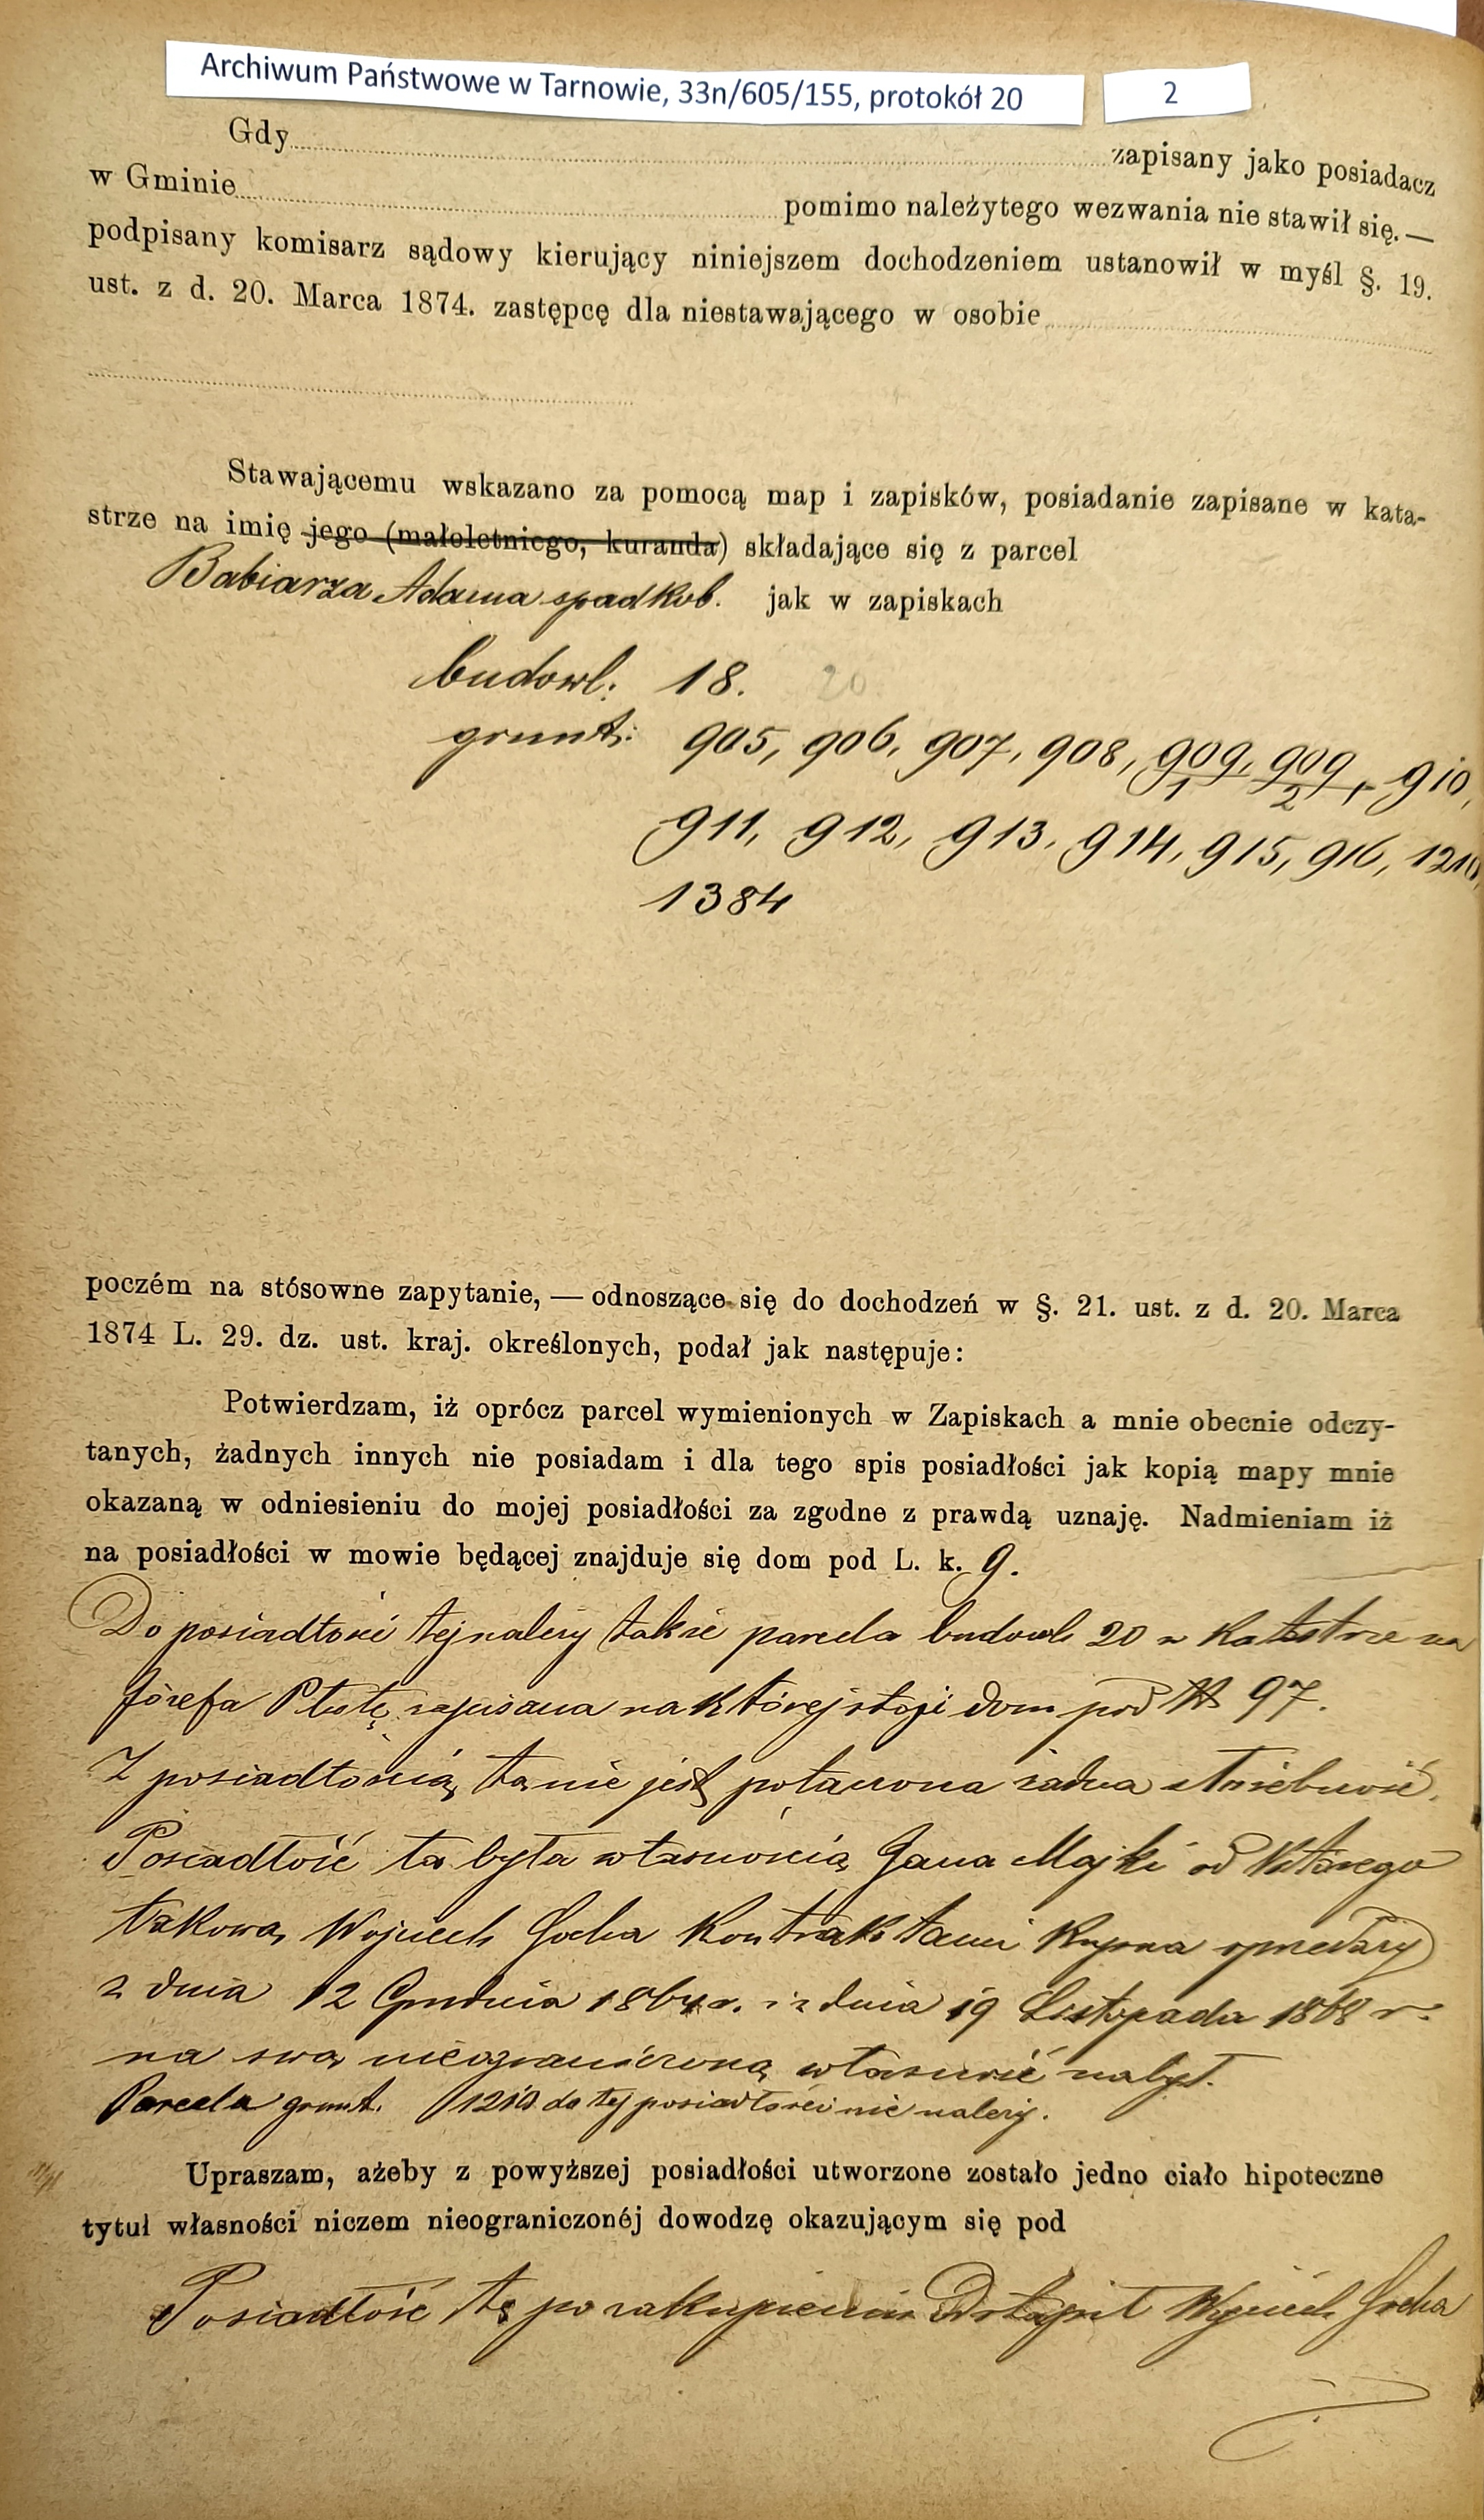 Archiwum Państwowe w Tarnowie, 33n/605/155, protokół 20
2
Gdy zapisany jako posiadacz
w Gminie pomimo należytego wezwania nie stawił się. —
podpisany komisarz sądowy kierujący niniejszem dochodzeniem ustanowił w myśl §. 19.
ust. z d. 20. Marca 1874. zastępcę dla niestawającego w osobie
Stawającemu wskazano za pomocą map i zapisków, posiadanie zapisane w kata-
strze na imię jego (małoletniego, kuranda) składające się z parcel
Babiarza Adama spadkob. jak w zapiskach
budowl: 18. 20
grunt: 905, 906, 907, 908, 909/1, 909/2 + 910,
911, 912, 913, 914, 915, 916, 1210,
1384
poczém na stósowne zapytanie, — odnoszące się do dochodzeń w §. 21. ust. z d. 20. Marca
1874 L. 29. dz. ust. kraj. określonych, podał jak następuje:
Potwierdzam, iż oprócz parcel wymienionych w Zapiskach a mnie obecnie odczy-
tanych, żadnych innych nie posiadam i dla tego spis posiadłości jak kopią mapy mnie
okazaną w odniesieniu do mojej posiadłości za zgodne z prawdą uznaję. Nadmieniam iż
na posiadłości w mowie będącej znajduje się dom pod L. k. 9.
Do posiadłości tej należy także parcela budowl. 20 w katastrze na
Józefa Płutę zapisana na której stoji dom pod N 97.
Z posiadłością tą nie jest połączona żadna służebność.
Posiadłość ta była własnością Jana Majki od którego
takową Wojciech Gocha kontraktami kupna sprzedaży
z dnia 12 Grudnia 1864 r. i z dnia 19 Listopada 1868 r.
na swą nieograniczoną własność nabył.
Parcela grunt. 1210 do tej posiadłości nie należy.
Upraszam, ażeby z powyższej posiadłości utworzone zostało jedno ciało hipoteczne
tytuł własności niczem nieograniczonéj dowodzę okazującym się pod
Posiadłość tę po zakupieniu odstąpił Wojciech Gocha